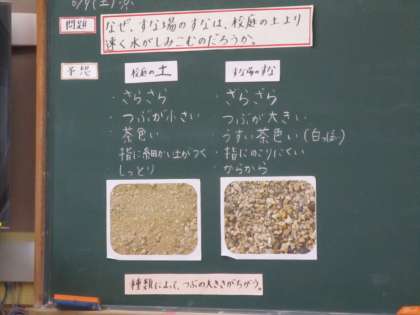 6/9(土)
問題
なぜ、すな場のすなは、校庭の土より
速く水がしみこむのだろうか。
予想
校庭の土
すな場のすな
・さらさら
・つぶが小さい
・茶色い
・指に細かい土がつく
・しっとり
・ざらざら
つぶが大きい
うすい茶色い(白
・指にのこりにくい
からから
種類によって、つぶの大きさがちがう。